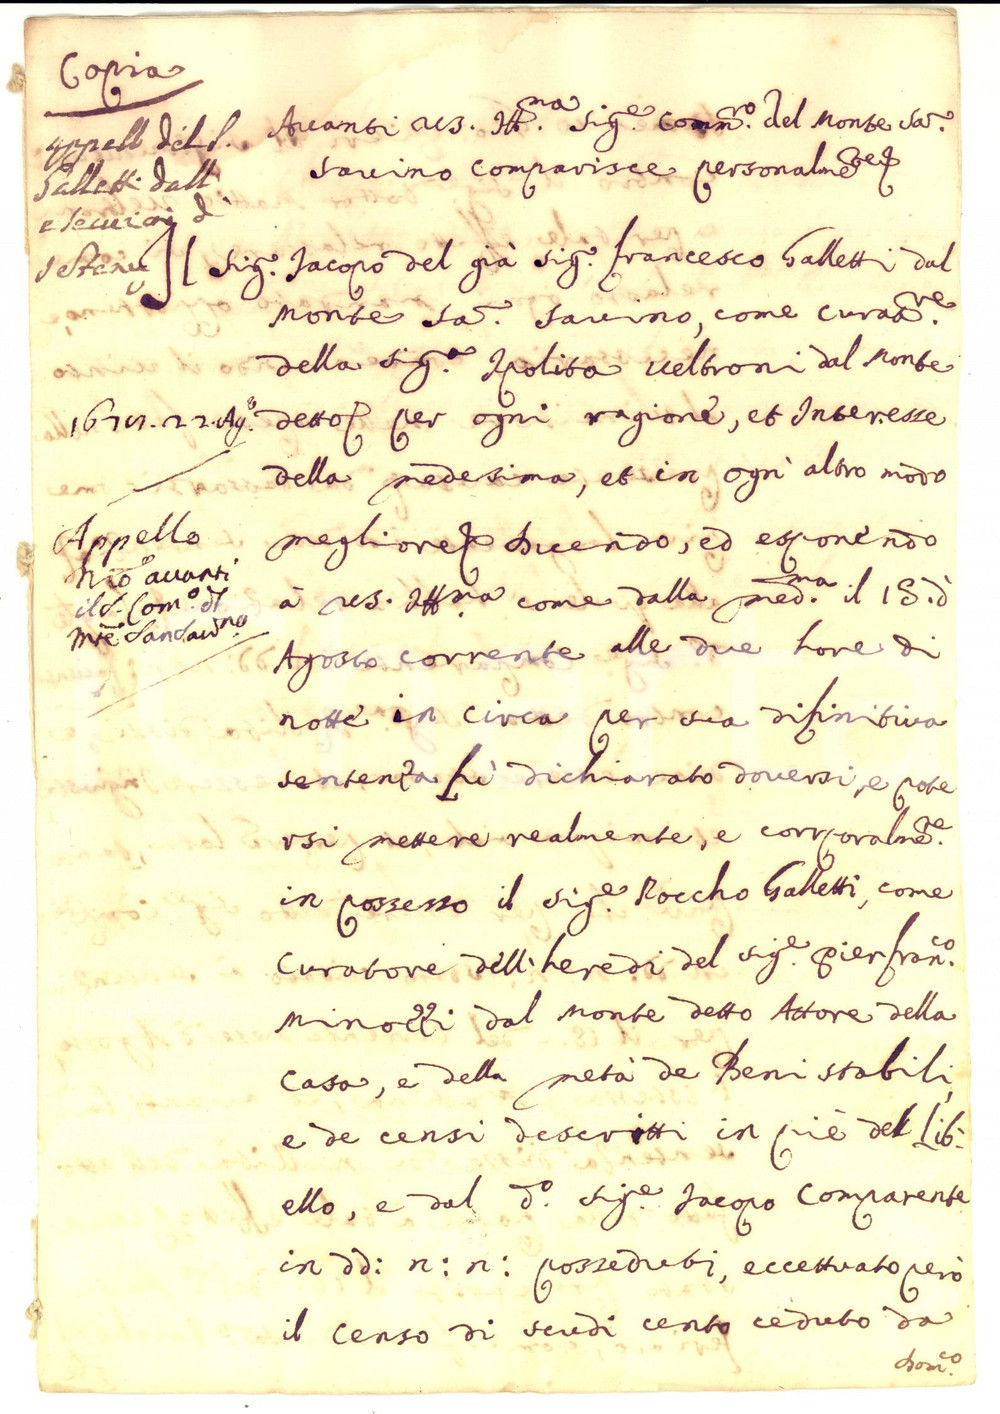 Copia
Appell del S.
Galletti dall
esecuzioni di
Avanti VS. Ill.ma Sig.e Comm.ro del Monte Sa.
Savino comparisce personalm.te
Il Sig.e Jacopo del già Sig.e francesco Galletti dal
Monte Sa. Savino, come Curat.re
della Sig.a Ipolita Veltroni dal Monte
22. Ag.o detto per ogni ragione, et Interesse
della medesima, et in ogni altro modo
megliore Dicendo, ed esponendo
Appello
avanti
il S. Com.o di
Mte San Savino
à VS. Ill.ma come dalla med.ma il 18. d
Agosto corrente alle due hore di
notte in circa per sua difinitiva
sentenza fù dichiarato doversi, e pote
rsi mettere realmente, e corporalm.e
in possesso il Sig.e Roccho Galletti, come
Curatore dell' heredi del Sig.e pierfran.co
Minozzi dal Monte detto Attore della
Casa, e della metà de Beni stabili,
e de censi descritti in piè del Lib-
ello, e dal d.o Sig.e Jacopo Comparente
in dd: n: n: posseduti, eccettuato però
il Censo di scudi cento ceduto da
Dom.co